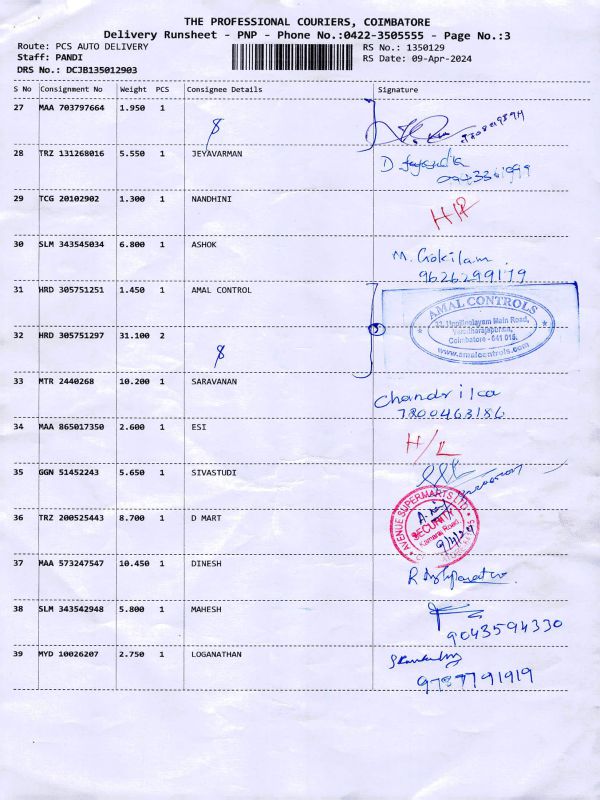 THE PROFESSIONAL COURIERS, COIMBATORE
Delivery Runsheet - PNP - Phone No.:0422-3505555 - Page No.:3
Route: PCS AUTO DELIVERY RS No.: 1350129
Staff: PANDI RS Date: 09-Apr-2024
DRS No.: DCJB135012903
S No Consignment No Weight PCS Consignee Details Signature
27 MAA 703797664 1.950 1
28 TRZ 131268016 5.550 1 JEYAVARMAN
29 TCG 20102902 1.300 1 NANDHINI
30 SLM 343545034 6.800 1 ASHOK M. Gokilam
9626299179
31 HRD 305751251 1.450 1 AMAL CONTROL
AMAL CONTROLS
Main Road,
Coimbatore - 641 015.
www.amalcontrols.com
32 HRD 305751297 31.100 2
33 MTR 2440268 10.200 1 SARAVANAN Chandrika
7200463186
34 MAA 865017350 2.600 1 ESI H/L
35 GGN 51452243 5.650 1 SIVASTUDI
36 TRZ 200525443 8.700 1 D MART
AVENUE SUPERMARTS LTD
SECURITY
Kamaraj Road,
9/4/24
37 MAA 573247547 10.450 1 DINESH
38 SLM 343542948 5.800 1 MAHESH
9043594330
39 MYD 10026207 2.750 1 LOGANATHAN
9787791919